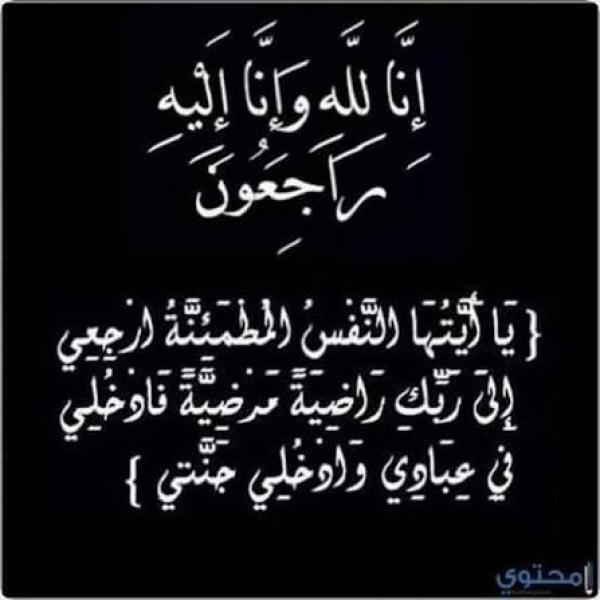 إِنَّا لِلَّهِ وَإِنَّا إِلَيْهِ
رَاجِعُونَ
{ يَا أَيَّتُهَا النَّفْسُ الْمُطْمَئِنَّةُ ارْجِعِي
إِلَى رَبِّكِ رَاضِيَةً مَرْضِيَّةً فَادْخُلِي
فِي عِبَادِي وَادْخُلِي جَنَّتِي }
محتوي